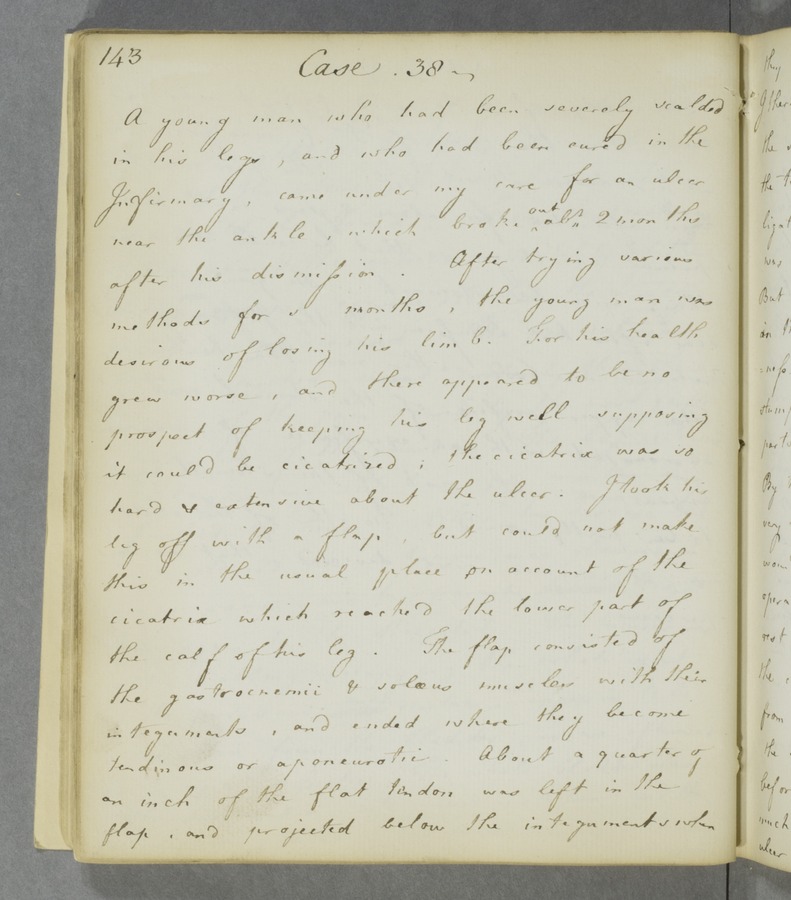 143
Case . 38
A young man who had been severely scalded
in his legs, and who had been cured in the
Infirmary, came under my care for an ulcer
near the ankle, which broke out abt 2 months
after his dismission. After trying various
methods for months, the young man was
desirous of losing his limb. For his health
grew worse, and there appeared to be no
prospect of keeping his leg well supposing
it could be cicatrized; the cicatrix was so
hard & extensive about the ulcer. I took his
leg off with a flap, but could not make
this in the usual place on account of the
cicatrix which reached the lower part of
the calf of his leg. The flap consisted of
the gastrocnemii & solæus muscles with their
integuments, and ended where they become
tendinous or aponeurotic. About a quarter of
an inch of the flat tendon was left in the
flap, and projected below the integuments when
they
the
the
was
But
in
part
By
very
opera
rest
the
from
the
before
much
ulcer